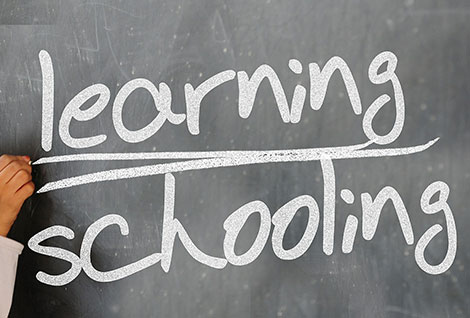 learning
schooling